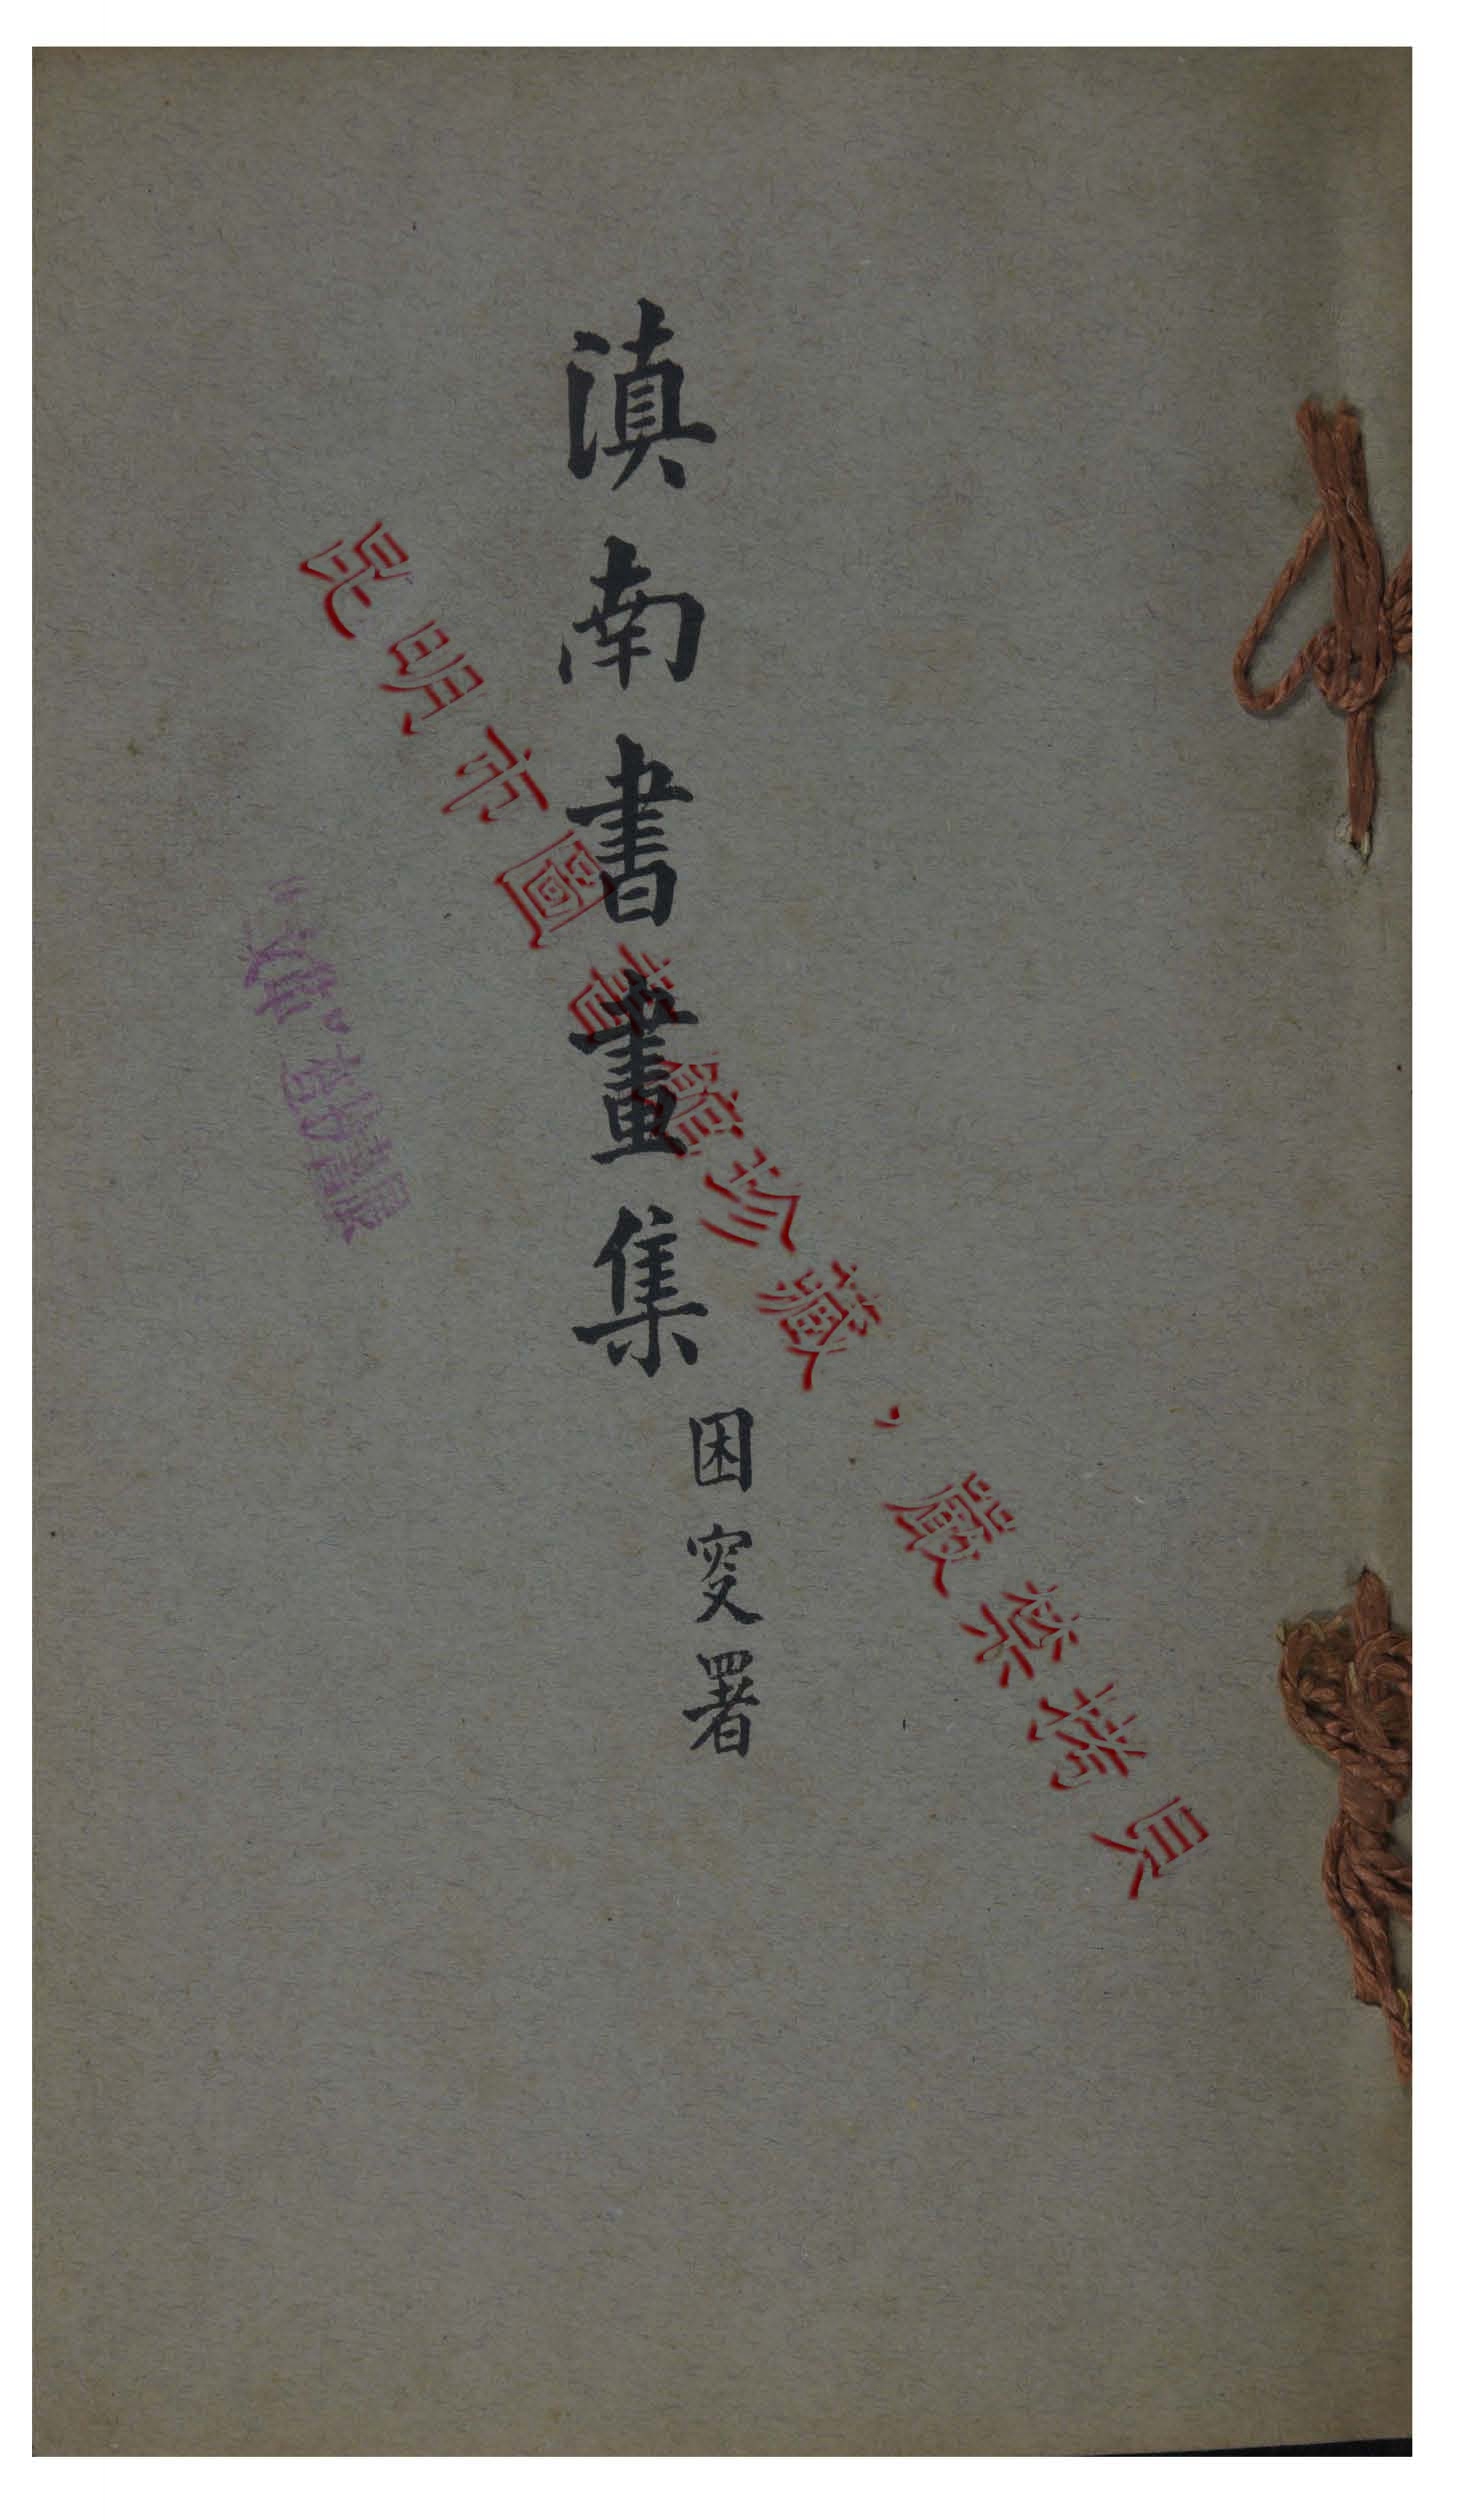 滇南書畫集
困叟署
昆明市圖書館珍藏，嚴禁拷貝